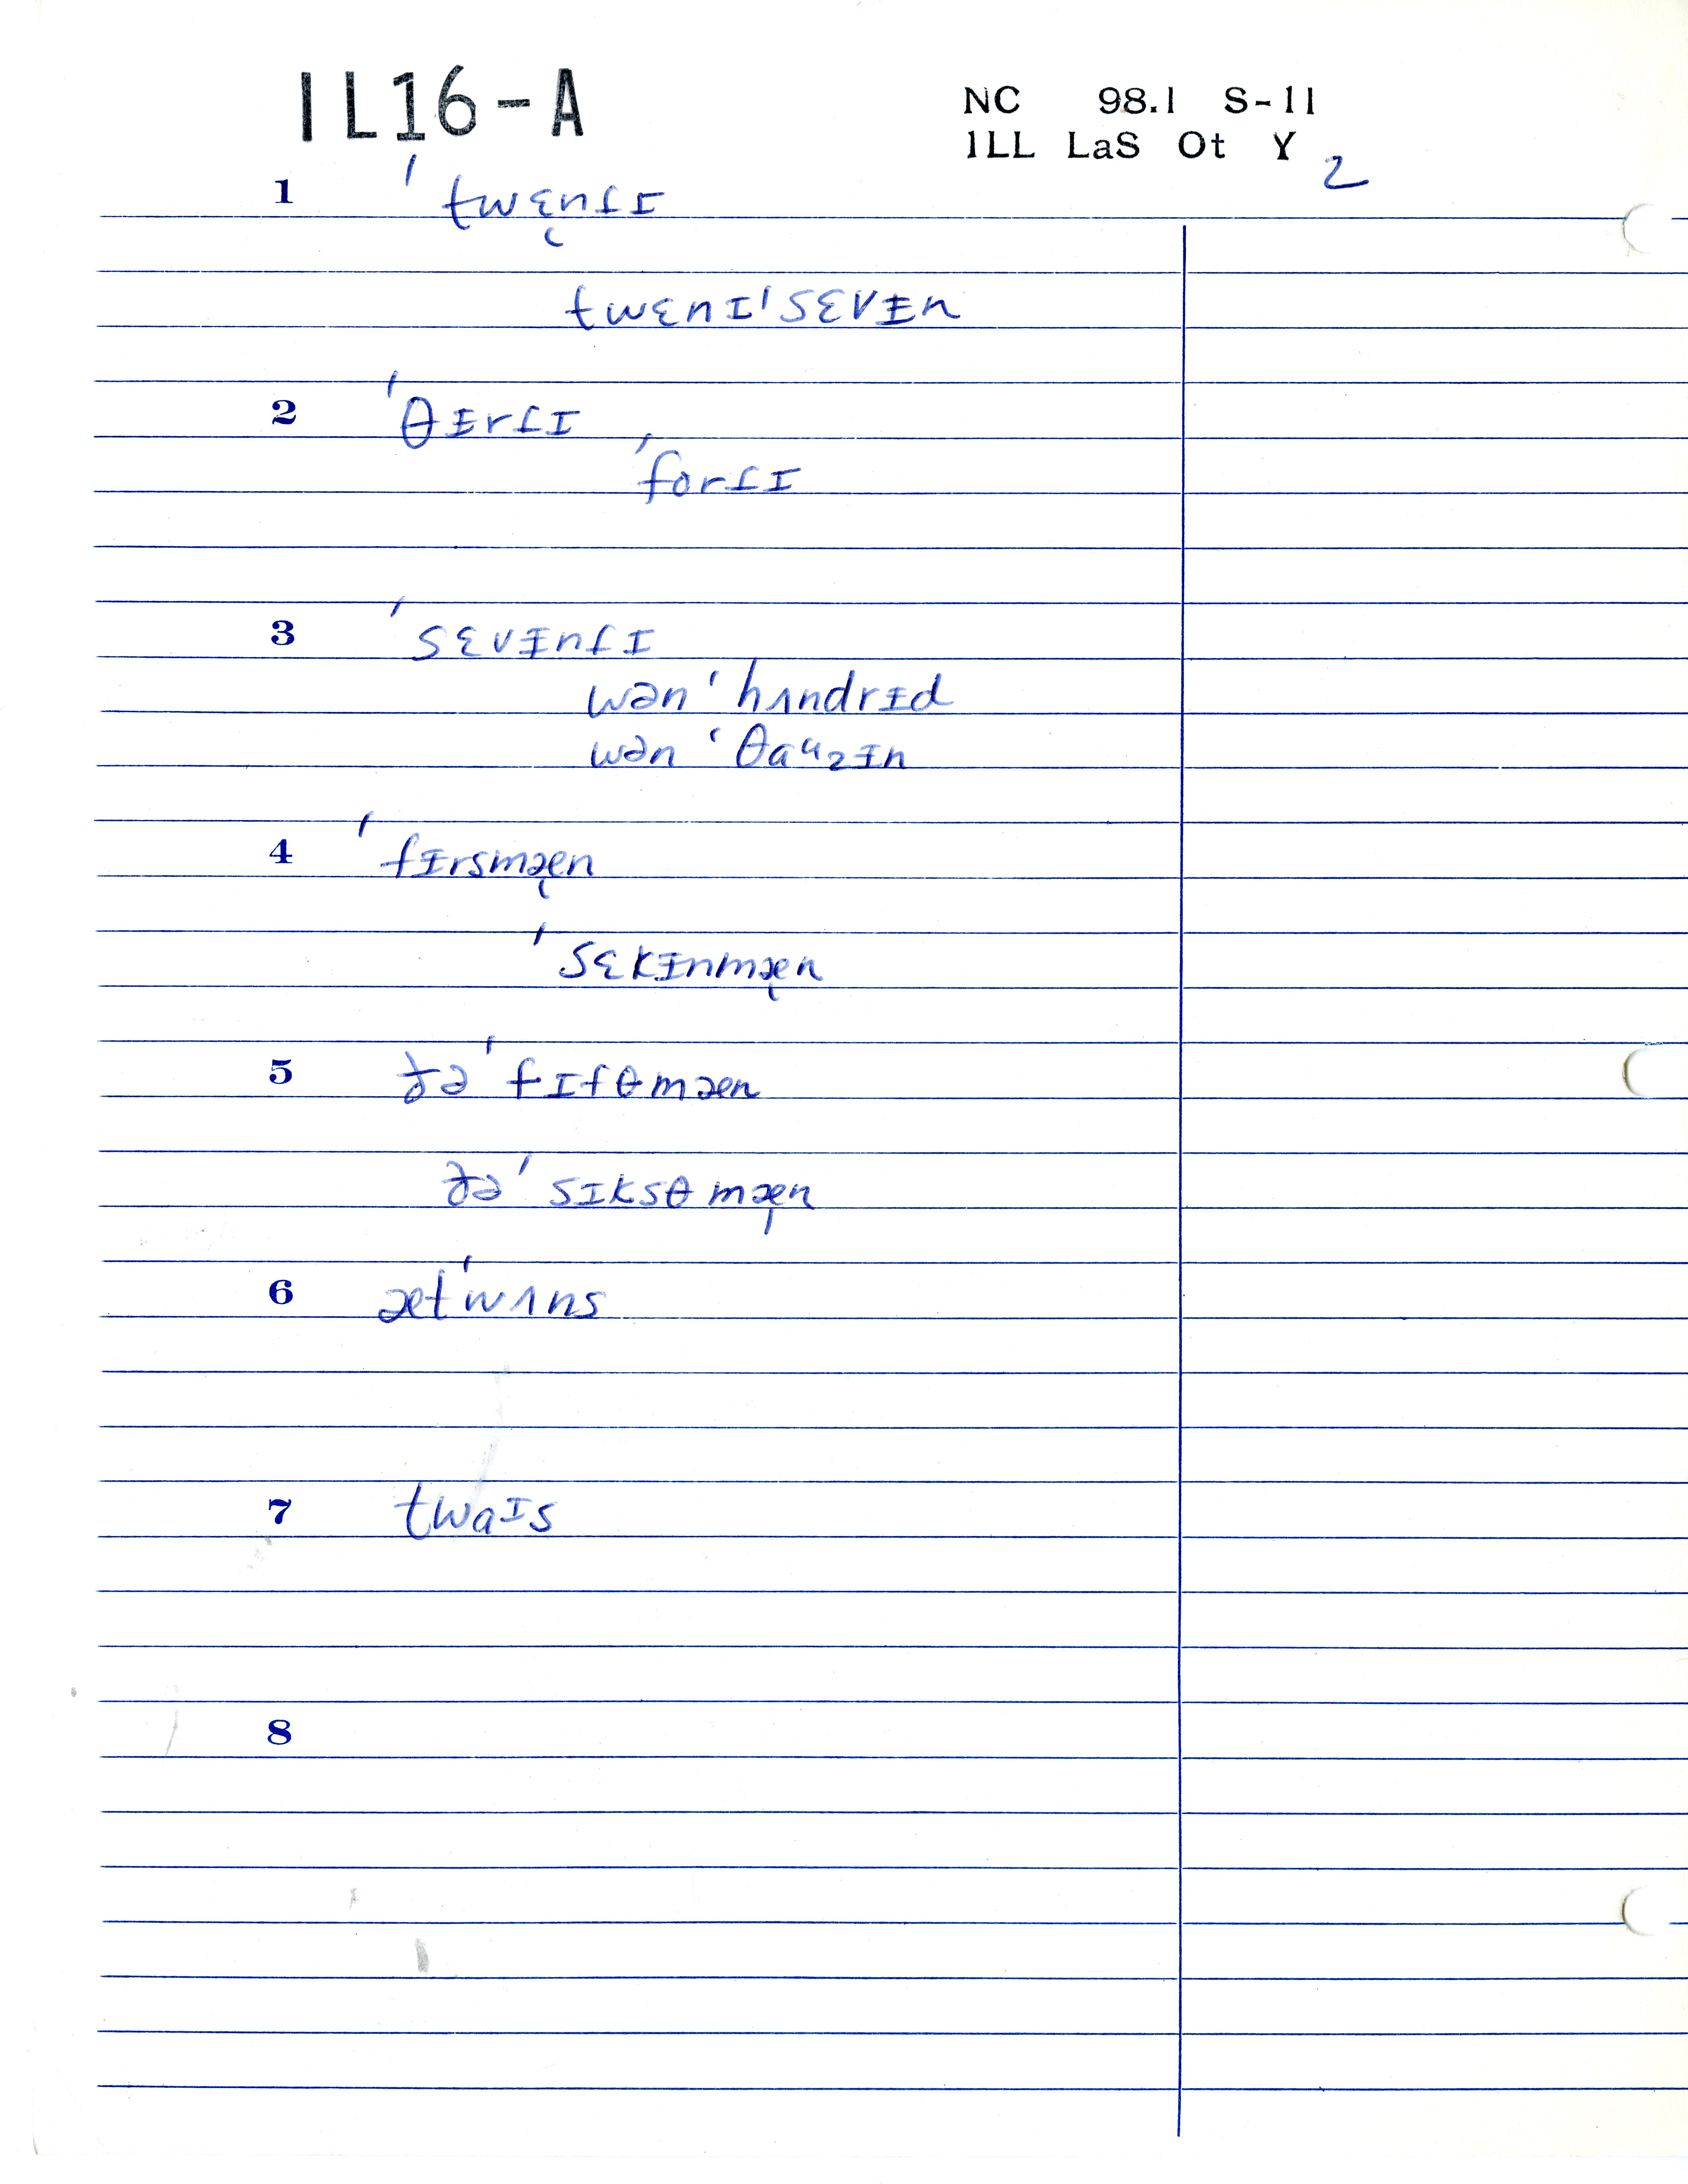 IL16-A
NC 98.1 S-11
ILL LaS Ot Y 2
1 ˈtwɛ̜nɾɪ
twɛnɪˈsɛvɪ̵n
2 ˈθɪ̵rɾɪ
ˈforɾɪ
3 ˈsɛvɪ̵nɾɪ
wənˈhʌndrɪ̵d
wənˈθaᶸzɪ̵n
4 ˈfɪ̵rsmæ̜n
ˈsɛkɪ̵nmæ̜n
5 ðəˈfɪfθmæn
ðəˈsɪksθmæ̩n
6 ætˈwʌns
7 twaᶦs
8